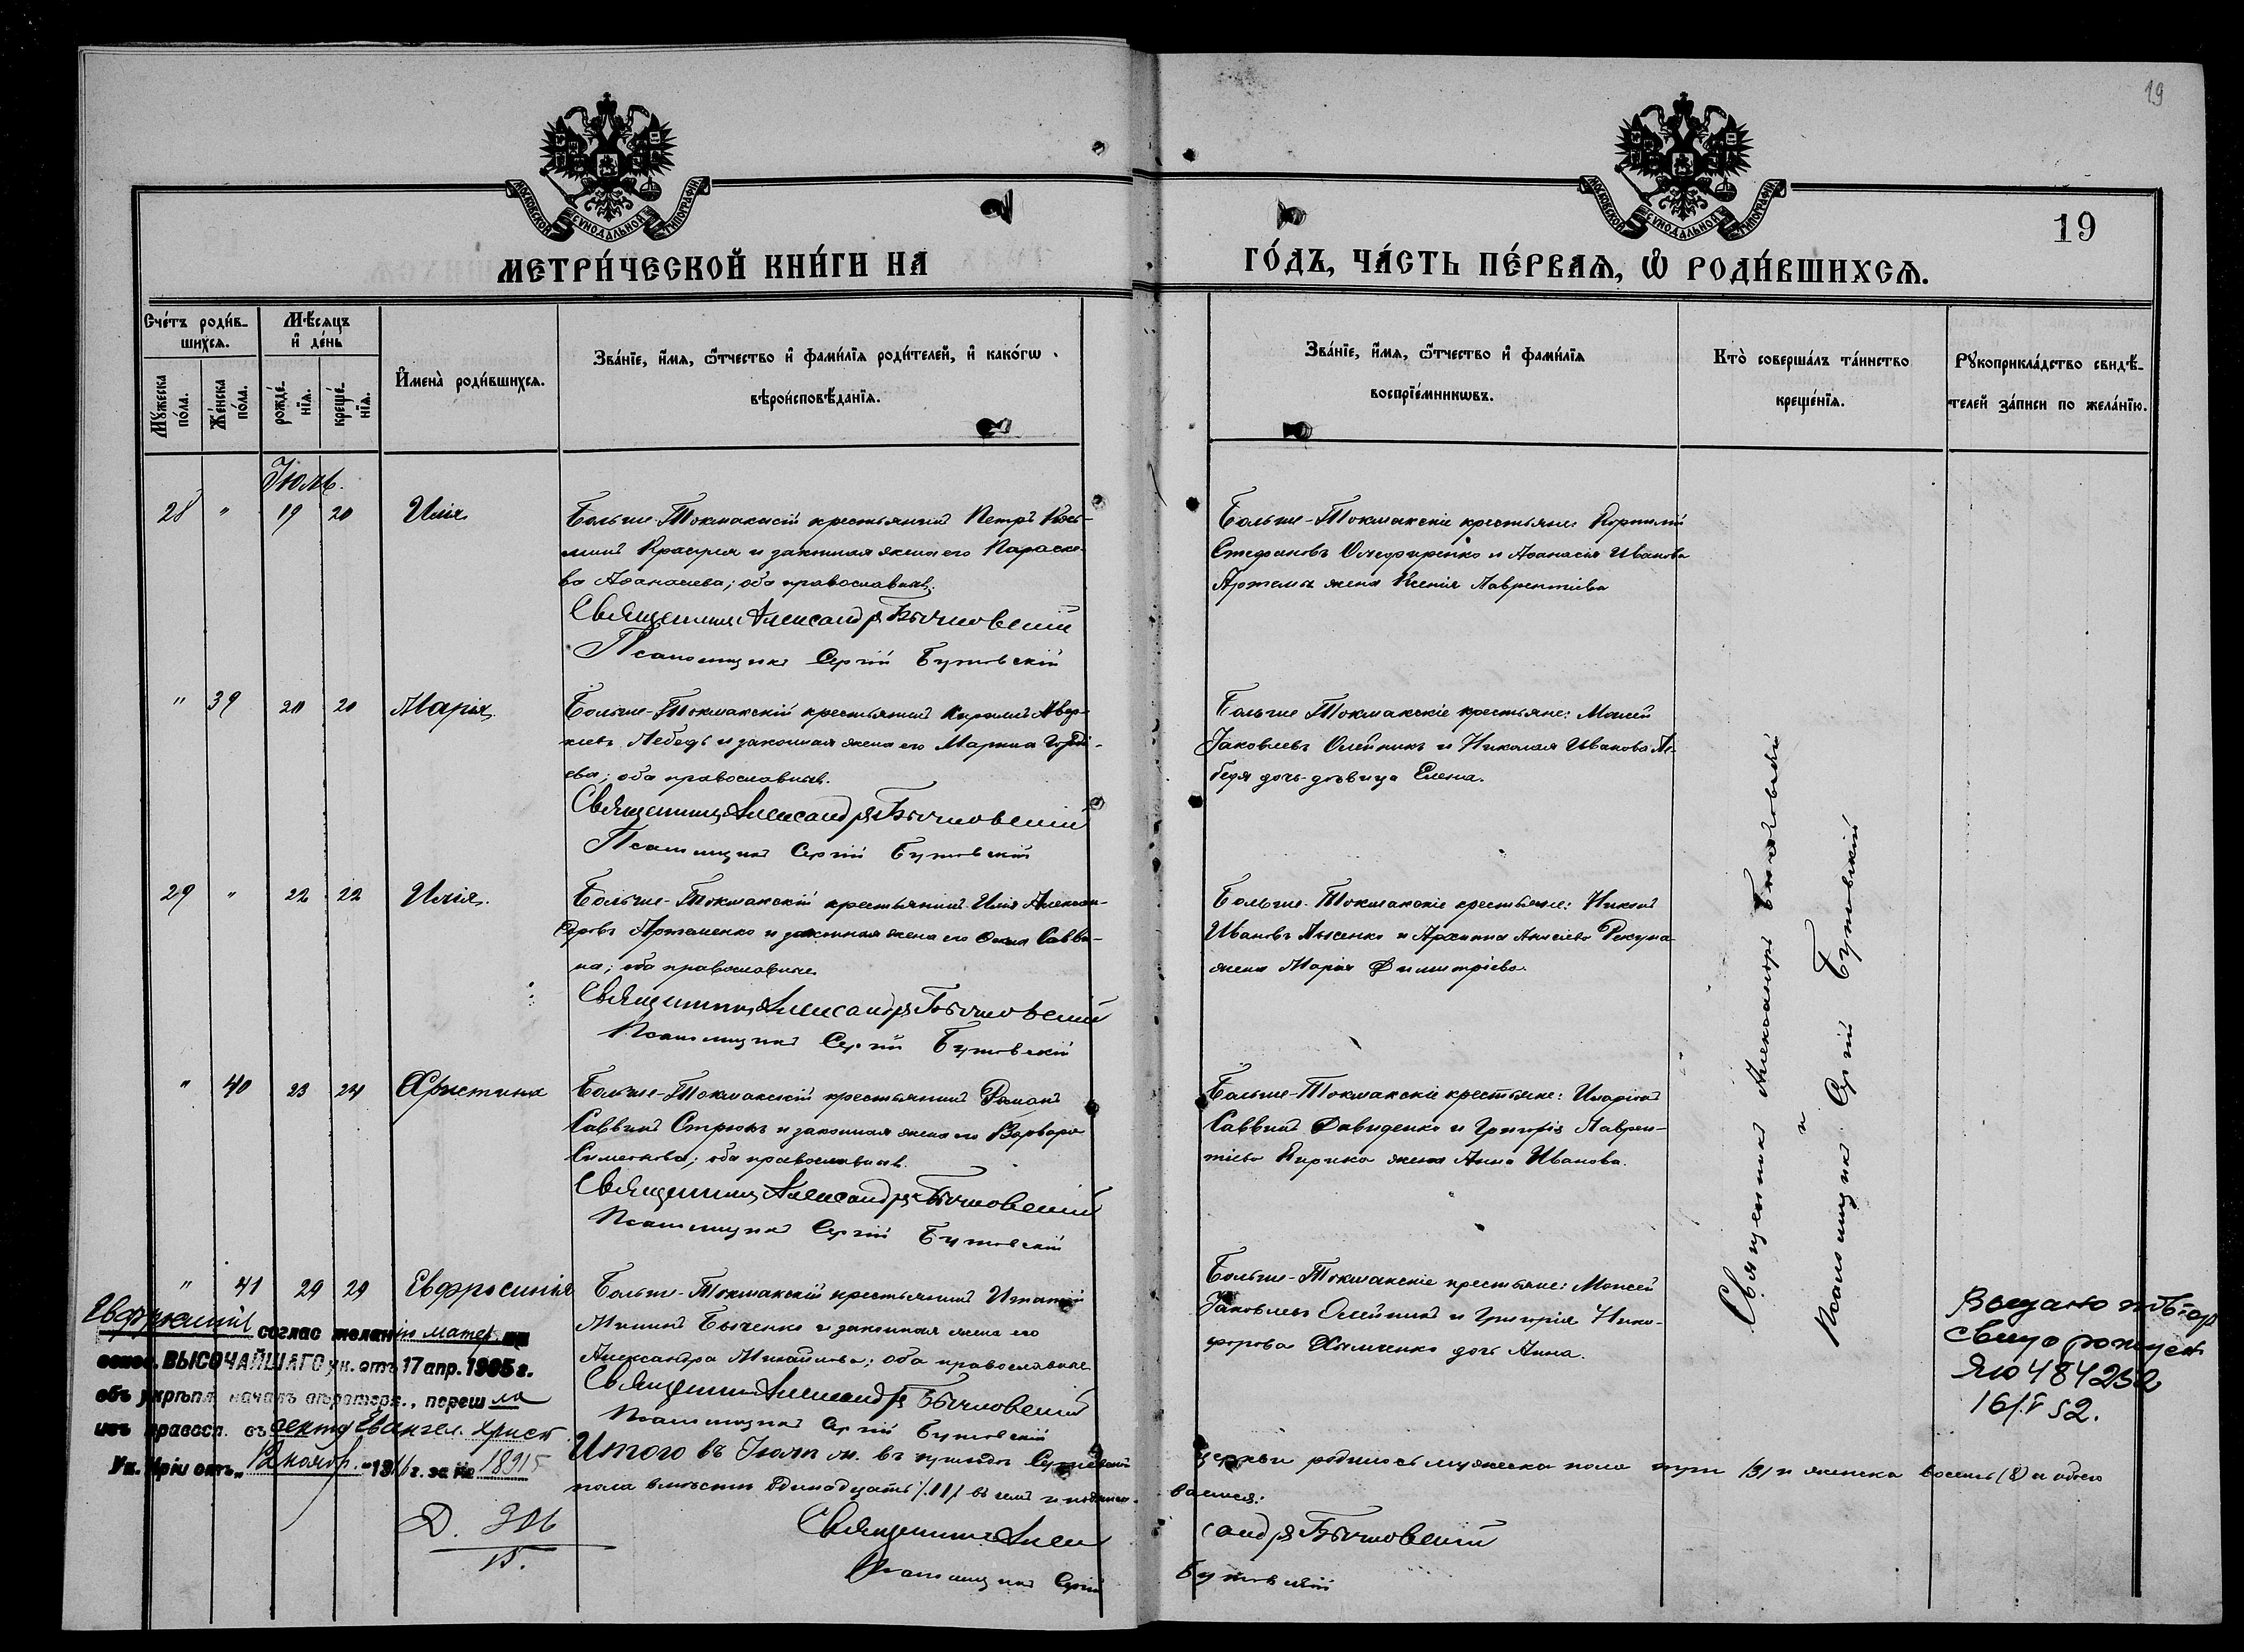 19
МОСКОВСКОЙ СѴНОДАЛЬНОЙ ТИПОГРАФІИ
МОСКОВСКОЙ СѴНОДАЛЬНОЙ ТИПОГРАФІИ
19
МЕТРИ́ЧЕСКОЙ КНИ́ГИ НА
ГО́ДЪ, ЧА́СТЬ ПЕ́РВАѦ, Ѽ РОДИ́ВШИХСѦ.
Сче́тъ роди́в-
шихсѧ.
Мѣ́сѧцъ
и҆ де́нь
Мꙋ́жеска
по́ла.
Же́нска
по́ла.
рожде́-
нїѧ.
креще́-
нїѧ.
И҆мена̀ роди́вшихсѧ.
Зва́нїе, и҆́мѧ, ѻ҆́тчество и҆ фами́лїѧ роди́телей, и҆ како́гѡ
вѣроисповѣ́данїѧ.
Зва́нїе, и҆́мѧ, ѻ҆́тчество и҆ фами́лїѧ
воспрїе́мникѡвъ.
Кто̀ соверша́лъ та́инство
креще́нїѧ.
Рꙋкоприкла́дство свидѣ́-
телей за́писи по жела́нїю.
Іюль.
28 " 19 20 Илія
Больше-Токмакскій крестьянинъ Петръ Кось-
минъ и законная жена его Параске-
ва Афанасьева; оба православные.
Священникъ Александръ
Псаломщикъ Сергій Бутовскій
Больше-Токмакскіе крестьяне: Корнилій
Стефановъ и Афанасія Иванова
жена Ксенія Лаврентіева
" 39 20 20 Марія
Больше-Токмакскій крестьянинъ Кириллъ Авер-
кіевъ Лебедь и законная жена его Марина Гордѣ-
ева; оба православные.
Священникъ Александръ
Псаломщикъ Сергій Бутовскій
Больше-Токмакскіе крестьяне: Моисей
Іаковлевъ Олейникъ и Николая Иванова Ле-
бедя дочь-дѣвица Елена.
29 " 22 22 Илія
Больше-Токмакскій крестьянинъ Илія Алексан-
дровъ Артеменко и законная жена его Савви-
на; оба православные
Священникъ Александръ
Псаломщикъ Сергій Бутовскій
Больше-Токмакскіе крестьяне: Никонъ
Ивановъ Лысенко и Архипа
жена Марія Димитріева.
" 40 23 24 Христина
Больше-Токмакскій крестьянинъ Романъ
Саввинъ и законная жена его Варвара
Симеонова; оба православные.
Священникъ Александръ
Псаломщикъ Сергій Бутовскій
Больше-Токмакскіе крестьяне: Иларіонъ
Саввинъ Давиденко и Григорія Лаврен-
тіева Кирика жена Анна Иванова.
" 41 29 29 Евфросинія
Больше-Токмакскій крестьянинъ Игнатій
Мининъ Быченко и законная жена его
Александра Михайлова; оба православные
Священникъ Александръ
Псаломщикъ Сергій Бутовскій
Больше-Токмакскіе крестьяне: Моисей
Іаковлевъ Олейникъ и Григорія Ники-
форова Хильченко дочь Анна.
Священникъ Александръ
и
Псаломщикъ Сергій Бутовскій
Евфросинія соглас желанію матер на
основ. ВЫСОЧАЙШАГО ук. отъ 17 апр. 1905 г.
объ укрѣпл. началъ вѣротерп., переш ла
изъ правосл. въ секту Евангел. христ.
Ук. Кріи отъ „12 нояб." 1916 г. за № 18915
Д. 306
15.
Выдано повтор
свид о рожден
ЯЮ 484252
16/V 52.
Итого въ Іюлѣ м. въ приходѣ церкви родилось мужеска пола три /3/ и женска восемь (8) а обоего
пола вмѣстѣ одинадцать /11/ въ чемъ и подписы-ваемся:
Священникъ Александръ
Псаломщикъ Сергій Бутовскій